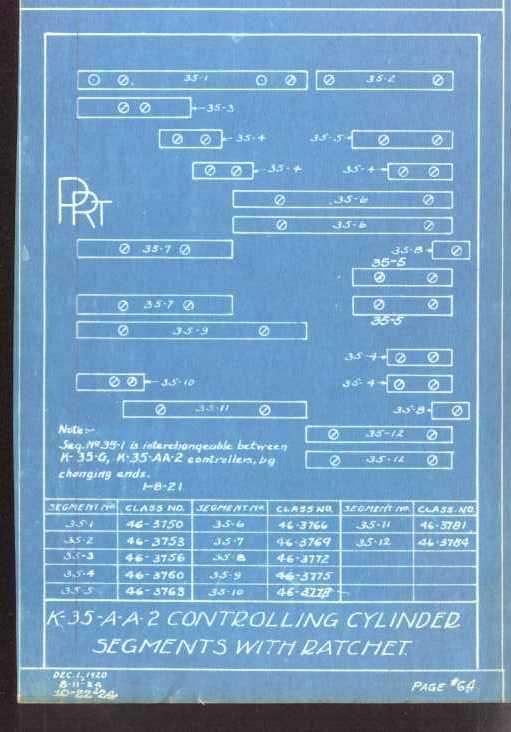 35-1 35-2
35-3
35-4 35-5
35-4 35-4
PRT
35-6
35-6
35-7 35-8
35-5
35-7
35-5
35-9
35-4
35-10 35-4
35-11 35-8
Note:-
Seg. Nº 35-1 is interchangeable between
K-35-G, K-35-AA-2 controllers, by
changing ends.
1-8-21
35-12
35-12
SEGMENT Nº CLASS NO. SEGMENT Nº CLASS NO. SEGMENT Nº CLASS NO.
35-1 46-3750 35-6 46-3766 35-11 46-3781
35-2 46-3753 35-7 46-3769 35-12 46-3784
35-3 46-3756 35-8 46-3772
35-4 46-3760 35-9 46-3775
35-5 46-3763 35-10 46-3778
K-35-A-A-2 CONTROLLING CYLINDER
SEGMENTS WITH RATCHET.
DEC. 1, 1920
8-11-24
10-22-24
PAGE #64